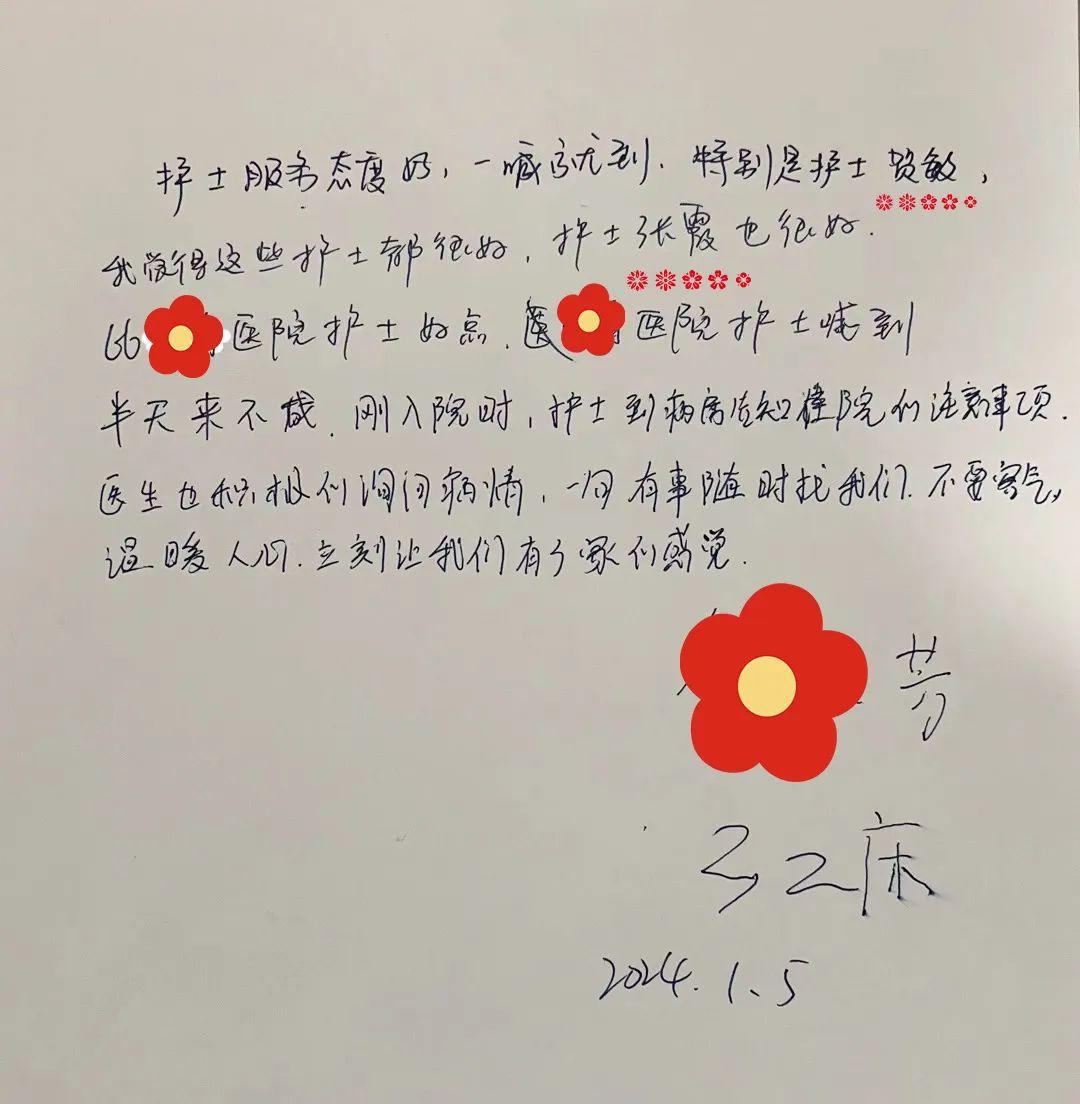 护士服务态度好，一喊就到．特别是护士贺敏，
我觉得这些护士都很好，护士张霞也很好．
医院护士好点．医院护士喊到
半天来不成．刚入院时，护士到病房告知住院们注意事项．
医生也积极们询问病情，一问有事随时找我们．不要客气，
温暖人心．立刻让我们有了家们感觉．
芳
32床
2024.1.5